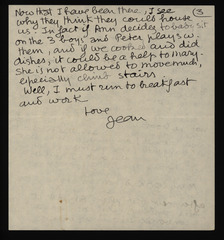 Now that I have been there, I see (3
why they think they could house
us. In fact if Ann decides to baby sit
on the 3 boys and Peter plays w.
them, and if we cooked and did
dishes, it could be a help to Mary.
She is not allowed to move much,
especially climb stairs
Well, I must run to breakfast
and work
Love
Jean